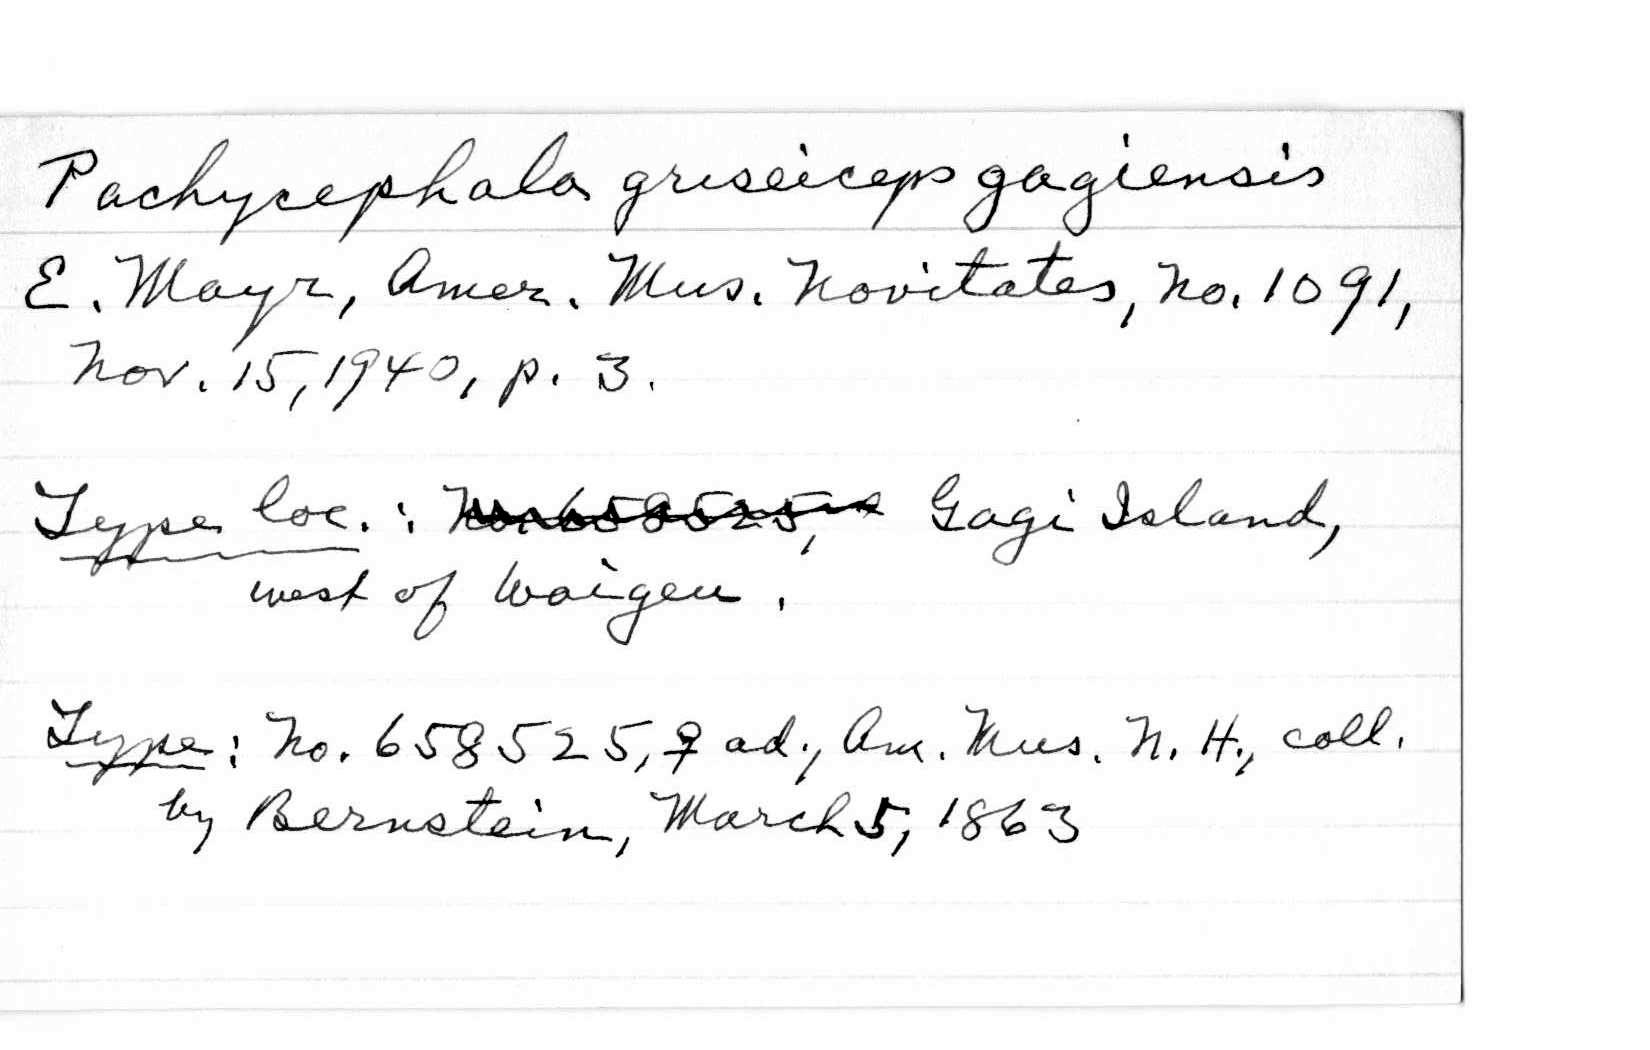 Pachycephala griseiceps gagiensis
E. Mayr, Amer. Mus. Novitates, No. 1091,
Nov. 15, 1940, p. 3.
Type loc.: No. 658525, Gagi Island,
west of Waigeu.
Type: No. 658525, ♀ ad., Am. Mus. N. H., coll.
by Bernstein, March 5, 1863